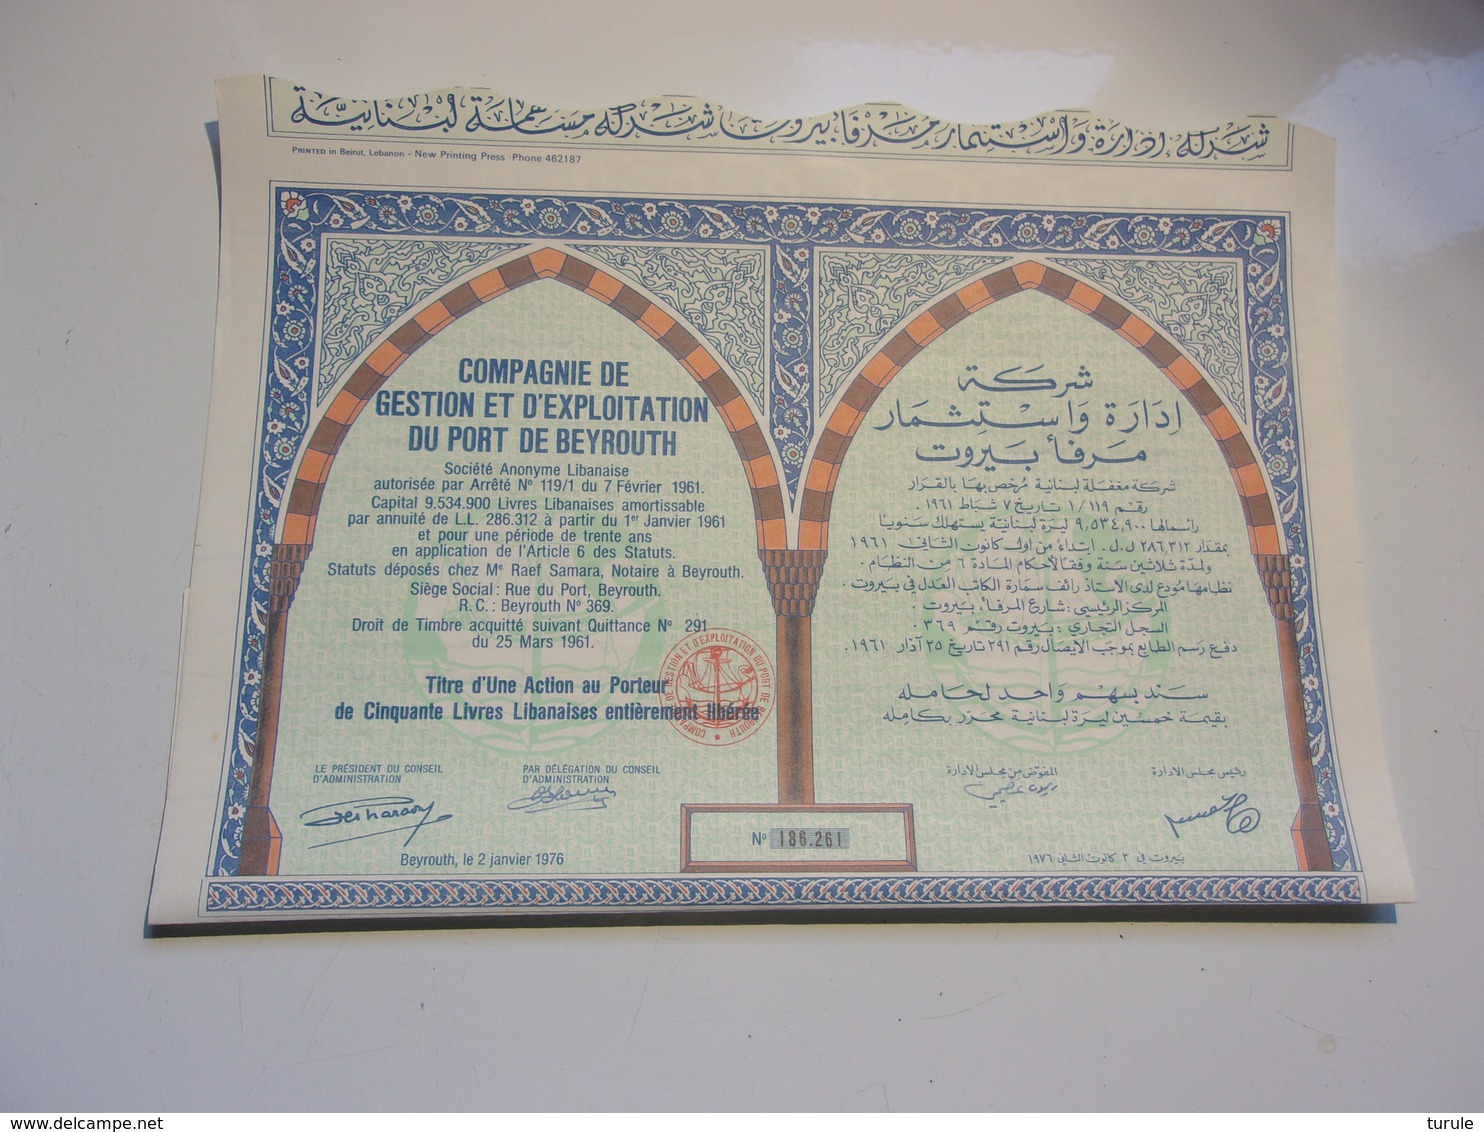 شركة إدارة واستثمار مرفأ بيروت شركة مساهمة لبنانية
PRINTED in Beirut, Lebanon - New Printing Press - Phone 462187
COMPAGNIE DE
GESTION ET D'EXPLOITATION
DU PORT DE BEYROUTH
Société Anonyme Libanaise
autorisée par Arrêté Nº 119/1 du 7 Février 1961.
Capital 9.534.900 Livres Libanaises amortissable
par annuité de L.L. 286.312 à partir du 1er Janvier 1961
et pour une période de trente ans
en application de l'Article 6 des Statuts.
Statuts déposés chez Me Raef Samara, Notaire à Beyrouth.
Siège Social : Rue du Port, Beyrouth.
R.C. : Beyrouth Nº 369.
Droit de Timbre acquitté suivant Quittance Nº 291
du 25 Mars 1961.
Titre d'Une Action au Porteur
de Cinquante Livres Libanaises entièrement libérée
COMPAGNIE DE GESTION ET D'EXPLOITATION DU PORT DE BEYROUTH
LE PRÉSIDENT DU CONSEIL
D'ADMINISTRATION
PAR DÉLÉGATION DU CONSEIL
D'ADMINISTRATION
Beyrouth, le 2 janvier 1976
شركة
إدارة واستثمار
مرفأ بيروت
شركة مغفلة لبنانية مرخص بها بالقرار
رقم ١/١١٩ تاريخ ٧ شباط ١٩٦١.
رأسمالها ٩,٥٣٤,٩٠٠ ليرة لبنانية يستهلك سنويا
بمقدار ٢٨٦,٣١٢ ل.ل. ابتداءً من أول كانون الثاني ١٩٦١
ولمدة ثلاثين سنة وفقا لأحكام المادة ٦ من النظام.
نظامها مودع لدى الاستاذ رائف سمارة الكاتب العدل في بيروت.
المركز الرئيسي: شارع المرفأ، بيروت.
السجل التجاري: بيروت رقم ٣٦٩.
دفع رسم الطابع بموجب الايصال رقم ٢٩١ تاريخ ٢٥ آذار ١٩٦١.
سند بسهم واحد لحامله
بقيمة خمسين ليرة لبنانية محرر بكامله
رئيس مجلس الادارة
المفوّض من مجلس الادارة
بيروت في ٢ كانون الثاني ١٩٧٦
Nº 186.261
delcampe.net
turule